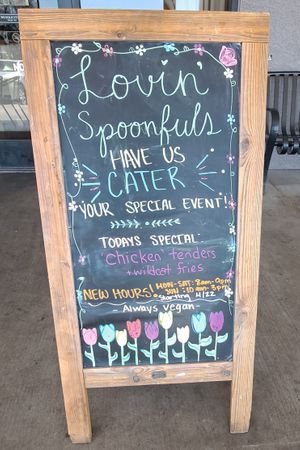 Lovin'
Spoonfuls
HAVE US
CATER
YOUR SPECIAL EVENT!
TODAYS SPECIAL
Chicken tenders
+ wildcat fries
NEW HOURS! MON-SAT: 8am-8pm
SUN: 10am-3pm
starting 4/22
-Always vegan-